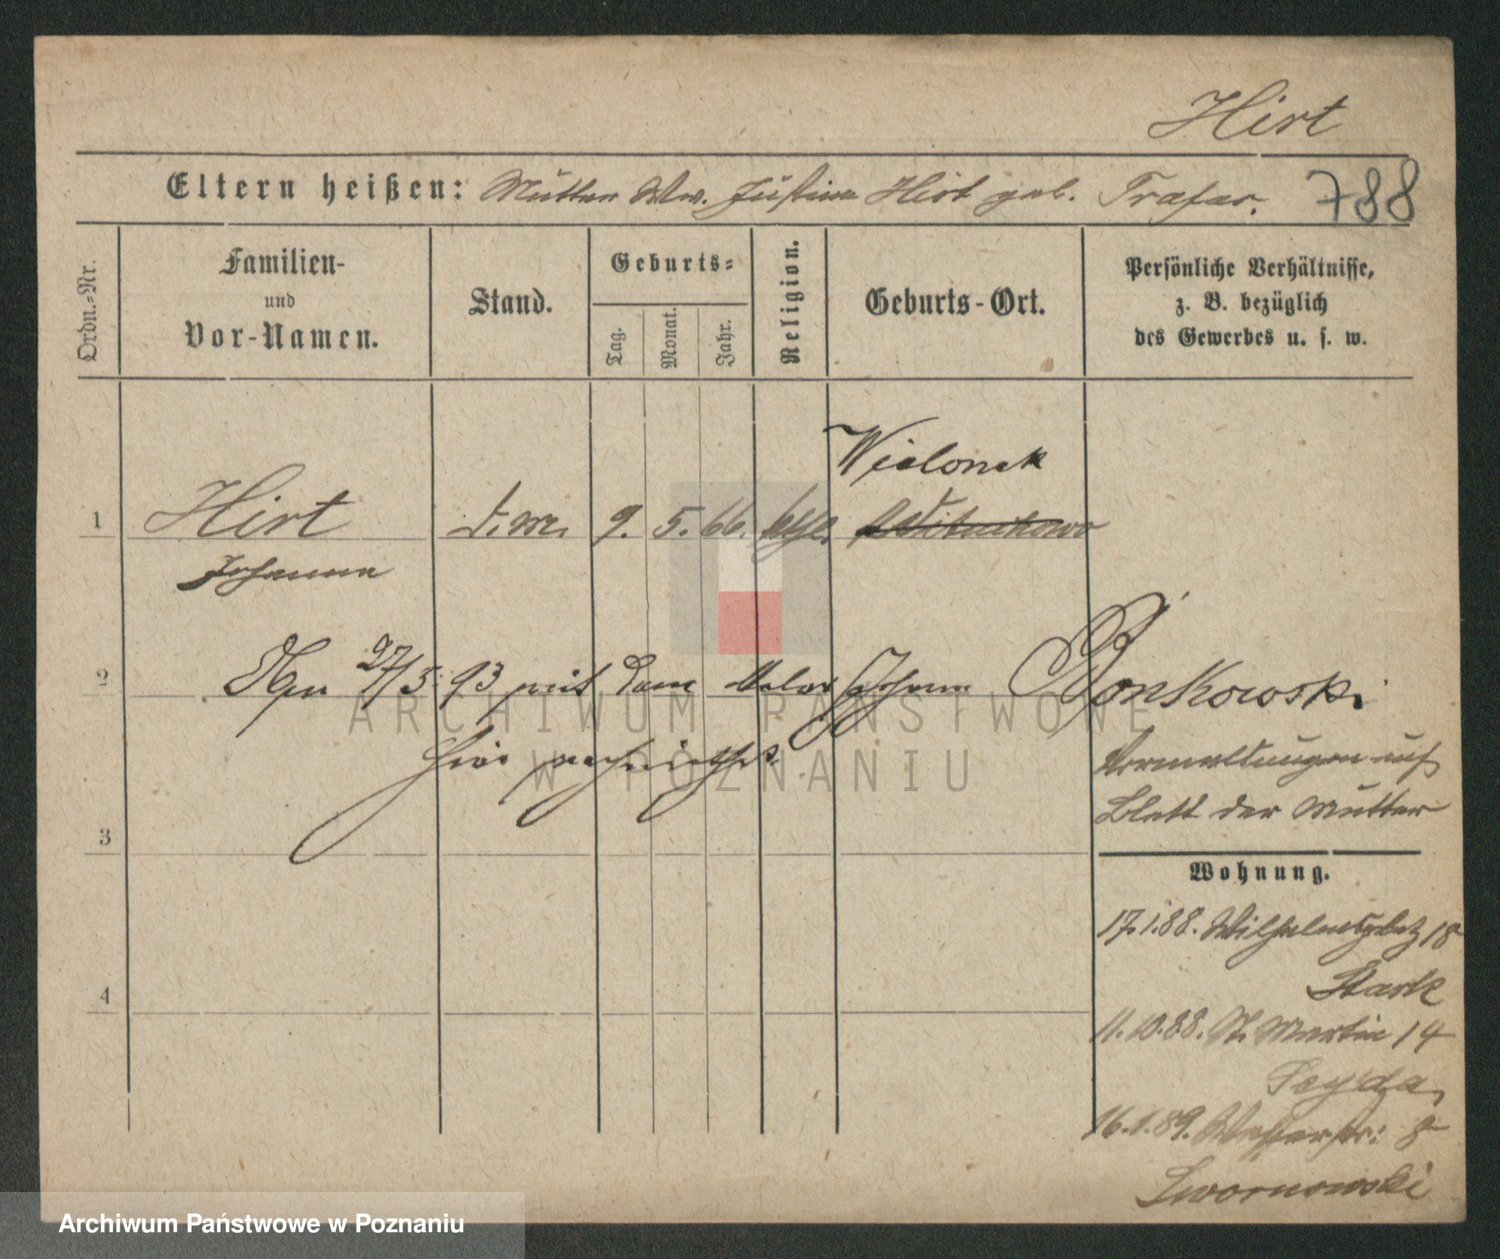 Hirt
Eltern heißen: Mutter Ww. Justine Hirt geb. Trafar. 788
Ordn.=Nr.
Familien-
und
Vor-Namen.
Stand.
Geburts=
Tag.
Monat.
Jahr.
Religion.
Geburts-Ort.
Persönliche Verhältnisse,
z. B. bezüglich
des Gewerbes u. s. w.
Wielonek
1 Hirt 9. 5. 66.
Johanna
2 27/5 93 mit dem Maler Johann Bonkowski
hier
Blatt der Mutter
3
Wohnung.
17.1.88. Wilhelmsplatz 18
Stark
4
11.10.88. St. Martin 14
Seyda
16.1.89. 8
Dwornowski
ARCHIWUM PAŃSTWOWE
W POZNANIU
Archiwum Państwowe w Poznaniu